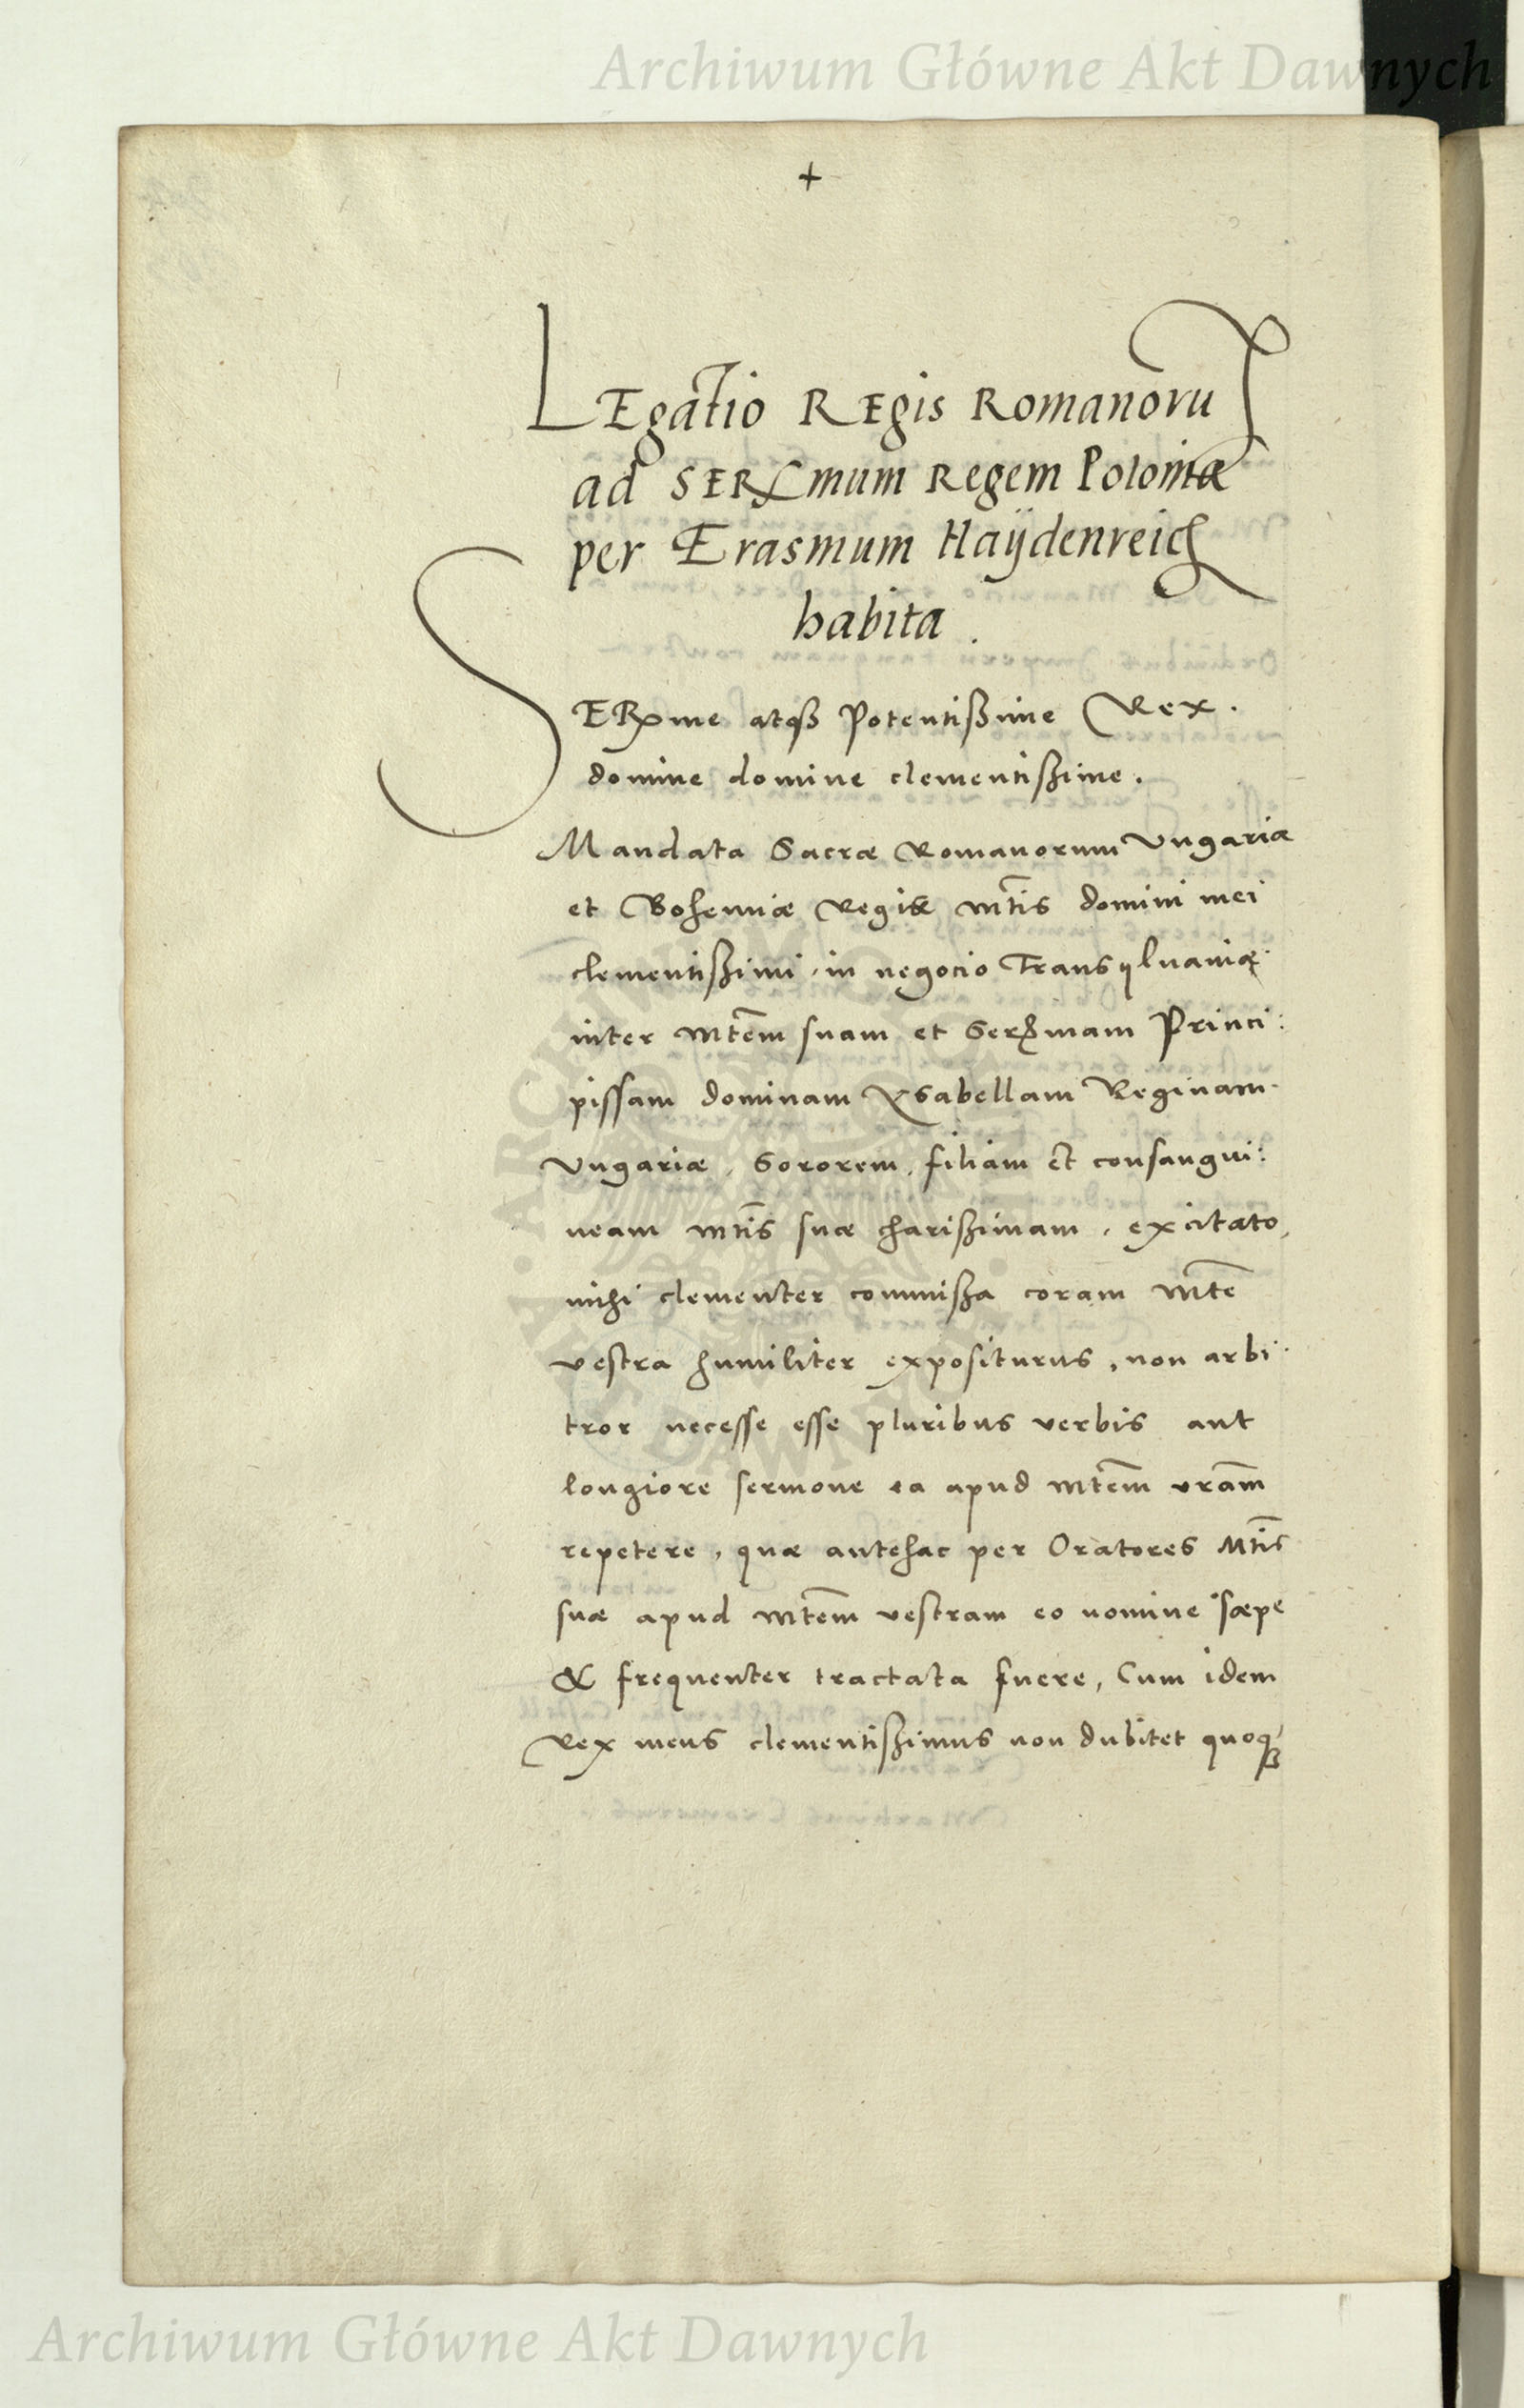 Archiwum Główne Akt Dawnych
+
LEgatio REgis Romanorū
ad SERmum Regem Poloniæ
per Erasmum Haÿdenreich
habita.
SERme atqз Potentißime Rex.
domine domine clementißime.
Mandata Sacræ Romanorum Vngariæ
et Bohemiæ Regiæ Mtis domini mei
clementißimi, in negocio Transylvaniæ
inter Mtem suam et Sermam Princi:
pissam dominam Ysabellam Reginam
Vngariæ, Sororem, filiam et consangui:
neam Mtis suæ charißimam, excitato,
mihi clementer commißa coram Mte
vestra humiliter expositurus, non arbi
tror necesse esse pluribus verbis aut
longiore sermone ea apud Mtem vram
repetere, quæ antehac per Oratores Mtis
suæ apud Mtem vestram eo nomine sæpe
& frequenter tractata fuere, Cum idem
Rex meus clementißimus non dubitet quoqз
Archiwum Główne Akt Dawnych